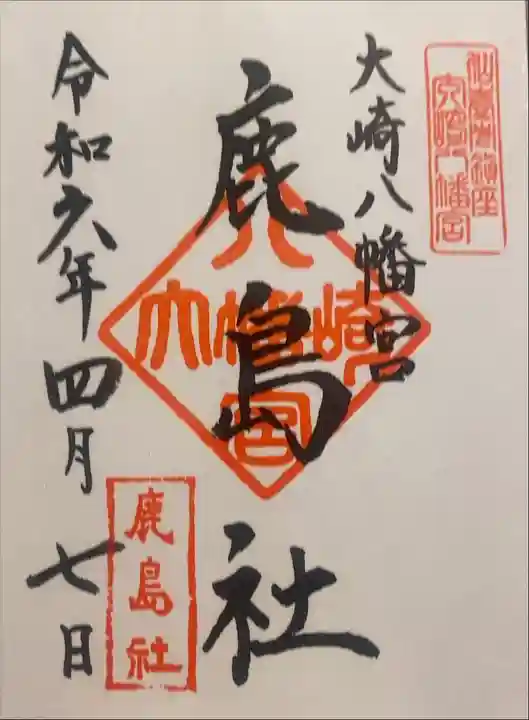 仙臺総鎮座
大崎八幡宮
大崎八幡宮
鹿島社
八
大幡崎
宮
令和六年四月七日
鹿島社